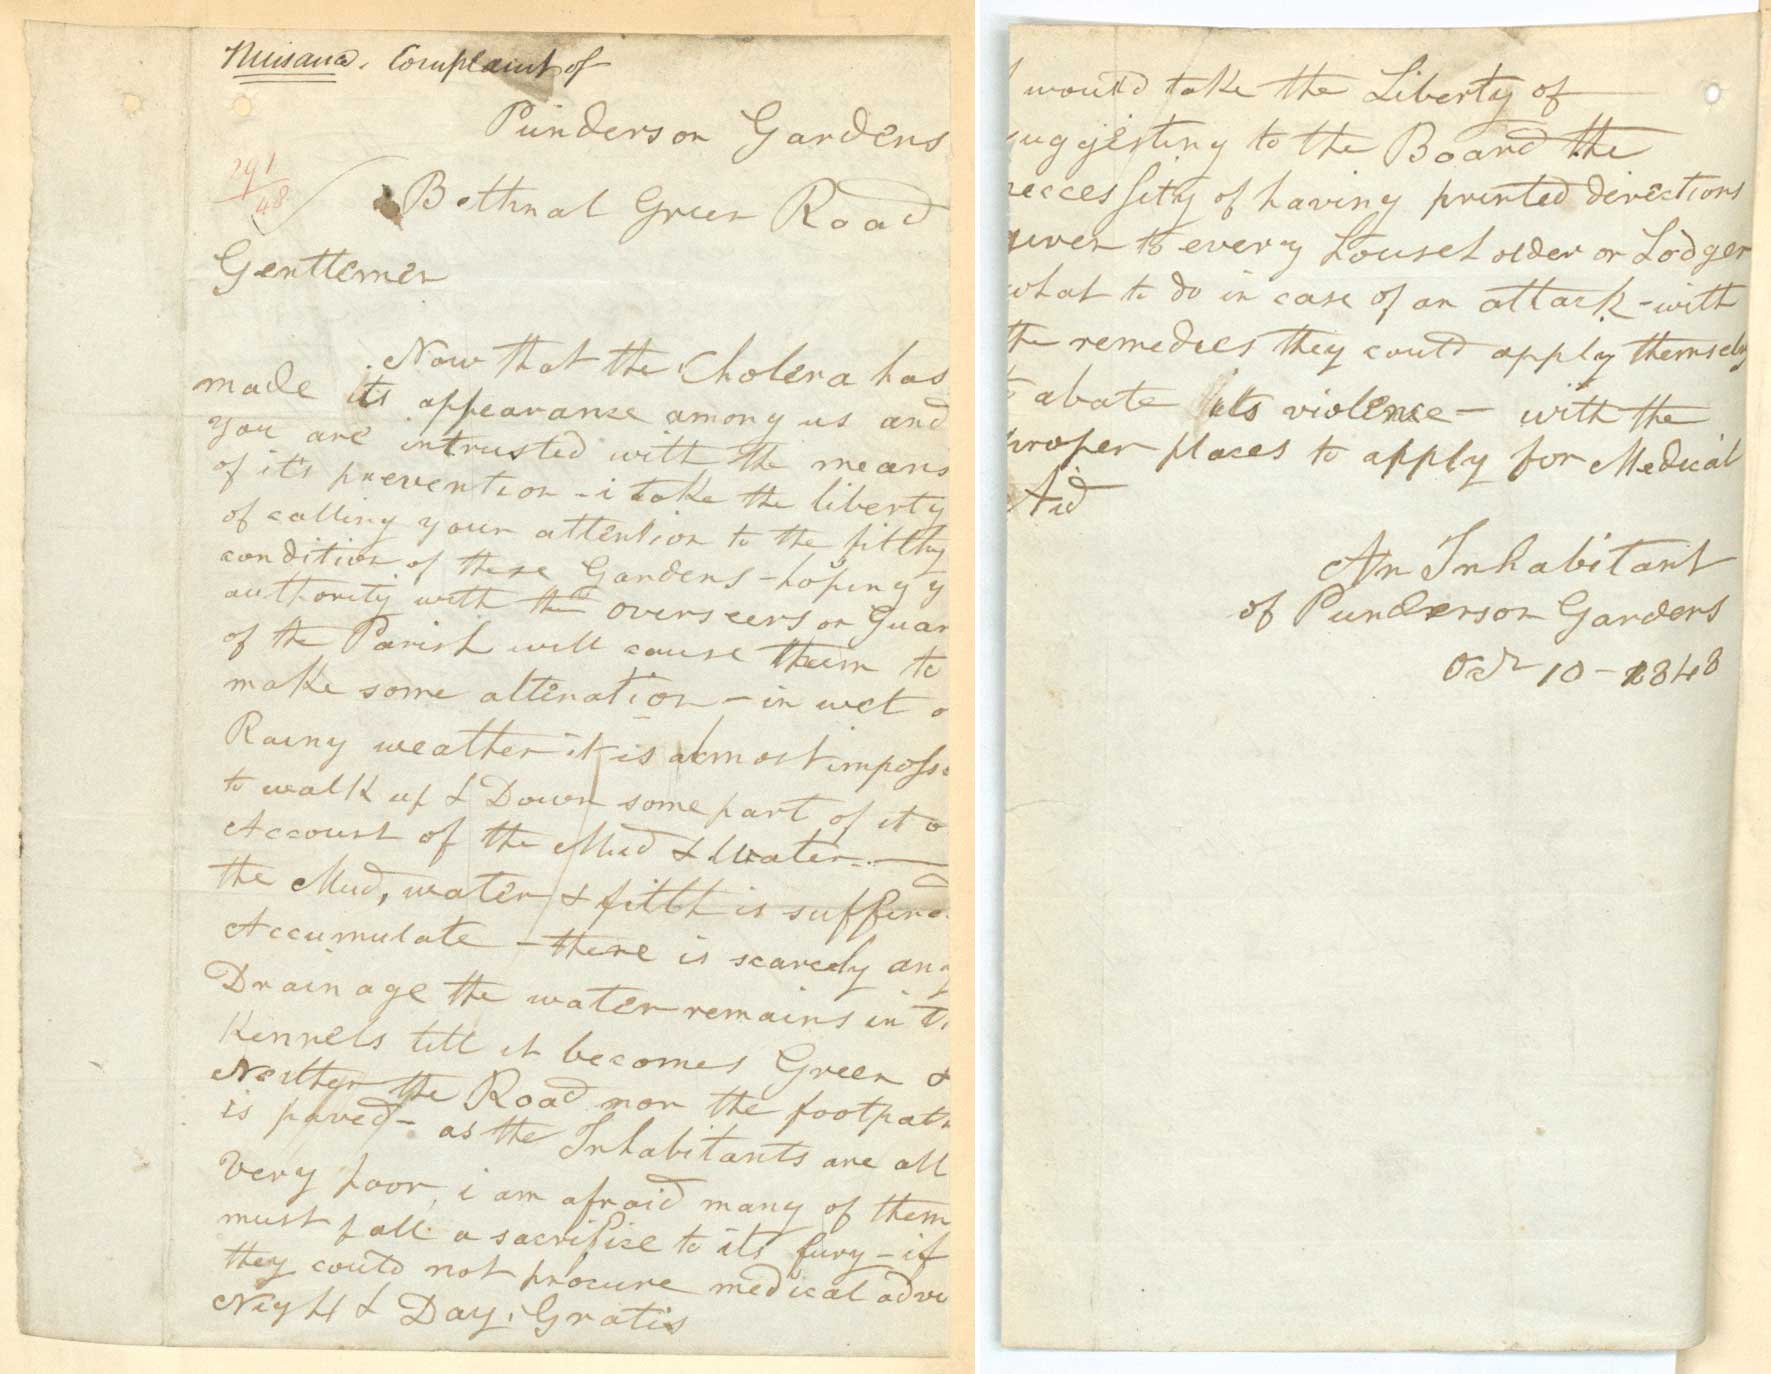 Nuisance. Complaint of
Punderson Gardens
Bethnal Green Road
291
48
Gentlemen
Now that the Cholera has
made its appearance among us and
you are intrusted with the means
of it's prevention - i take the liberty
of calling your attention to the filthy
condition of these Gardens - hoping y
authority with the overseers or Guar
of the Parish will cause them to
make some alteration - in wet o
Rainy weather it is almost imposs
to walk up & Down some part of it o
Account of the Mud & Water -
the Mud, water & filth is suffered
Accumulate - there is scarcely any
Drainage the water remains in t
Kennels till it becomes Green &
Neither the Road nor the footpath
is paved - as the Inhabitants are all
very poor, i am afraid many of them
must fall a sacrifice to its fury - if
they could not procure medical advi
Night & Day, Gratis
I would take the Liberty of
suggesting to the Board the
neccessity of having printed directions
given to every Householder or Lodger
what to do in case of an attack - with
the remedies they could apply themselvs
to abate its violence - with the
proper places to apply for Medical
Aid
An Inhabitant
of Punderson Gardens
Octr 10 - 1848